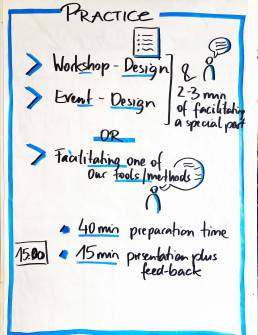 PRACTICE
> Workshop - Design
> Event - Design
&
2-3 min
of facilitating
a special part
OR
> Facilitating one of
our tools/methods
• 40 min preparation time
15:00
• 15 min presentation plus
feed-back